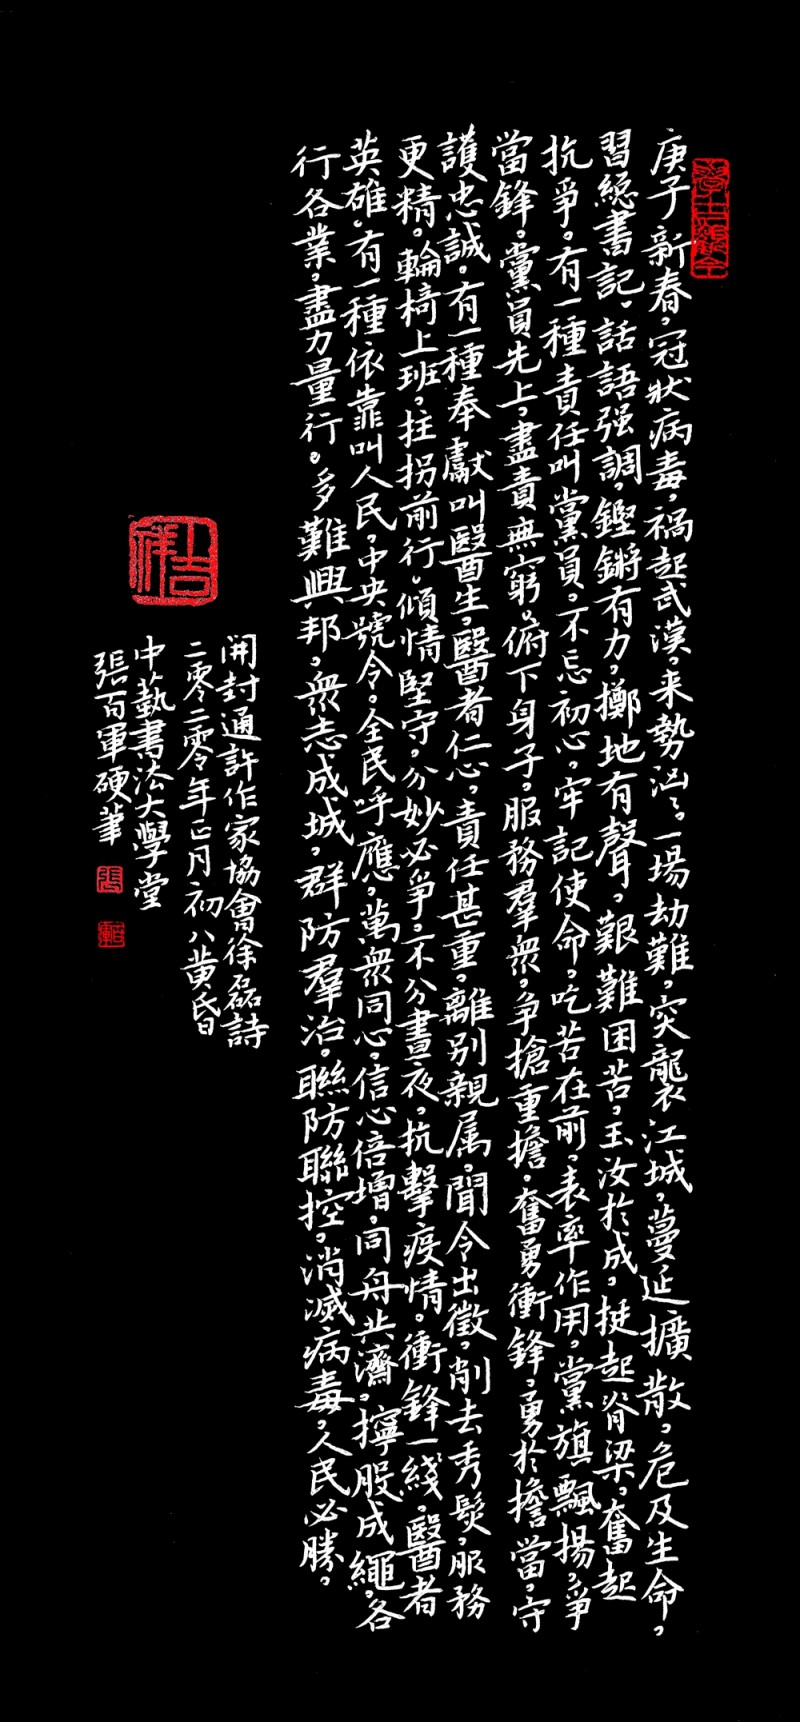 庚子新春，冠狀病毒，禍起武漢，来勢汹汹。一場劫難，突襲江城，蔓延擴散，危及生命，
習總書記，話語强調，鏗鏘有力，擲地有聲，艱難困苦，玉汝於成，挺起脊梁，奮起
抗爭。有一種責任叫黨員，不忘初心，牢記使命，吃苦在前，表率作用，黨旗飄揚，爭
當鋒，黨員先上，盡責無窮。俯下身子，服務羣衆，争搶重擔，奮勇衝鋒，勇於擔當，守
護忠誠。有一種奉獻叫醫生，醫者仁心，責任甚重，離別親属，聞令出徵，削去秀髮，服務
更精。輪椅上班，拄拐前行。傾情堅守，分妙必爭，不分晝夜，抗擊疫情。衝鋒一綫，醫者
英雄。有一種依靠叫人民，中央號令。全民呼應，萬衆同心，信心倍增，同舟共濟，擰股成繩，各
行各業，盡力量行。多難興邦，衆志成城，群防羣治，聯防聯控，消滅病毒，人民必勝。
開封通許作家協會徐磊詩
二零二零年正月初八黄昏
中藝書法大學堂
張百軍硬筆
張